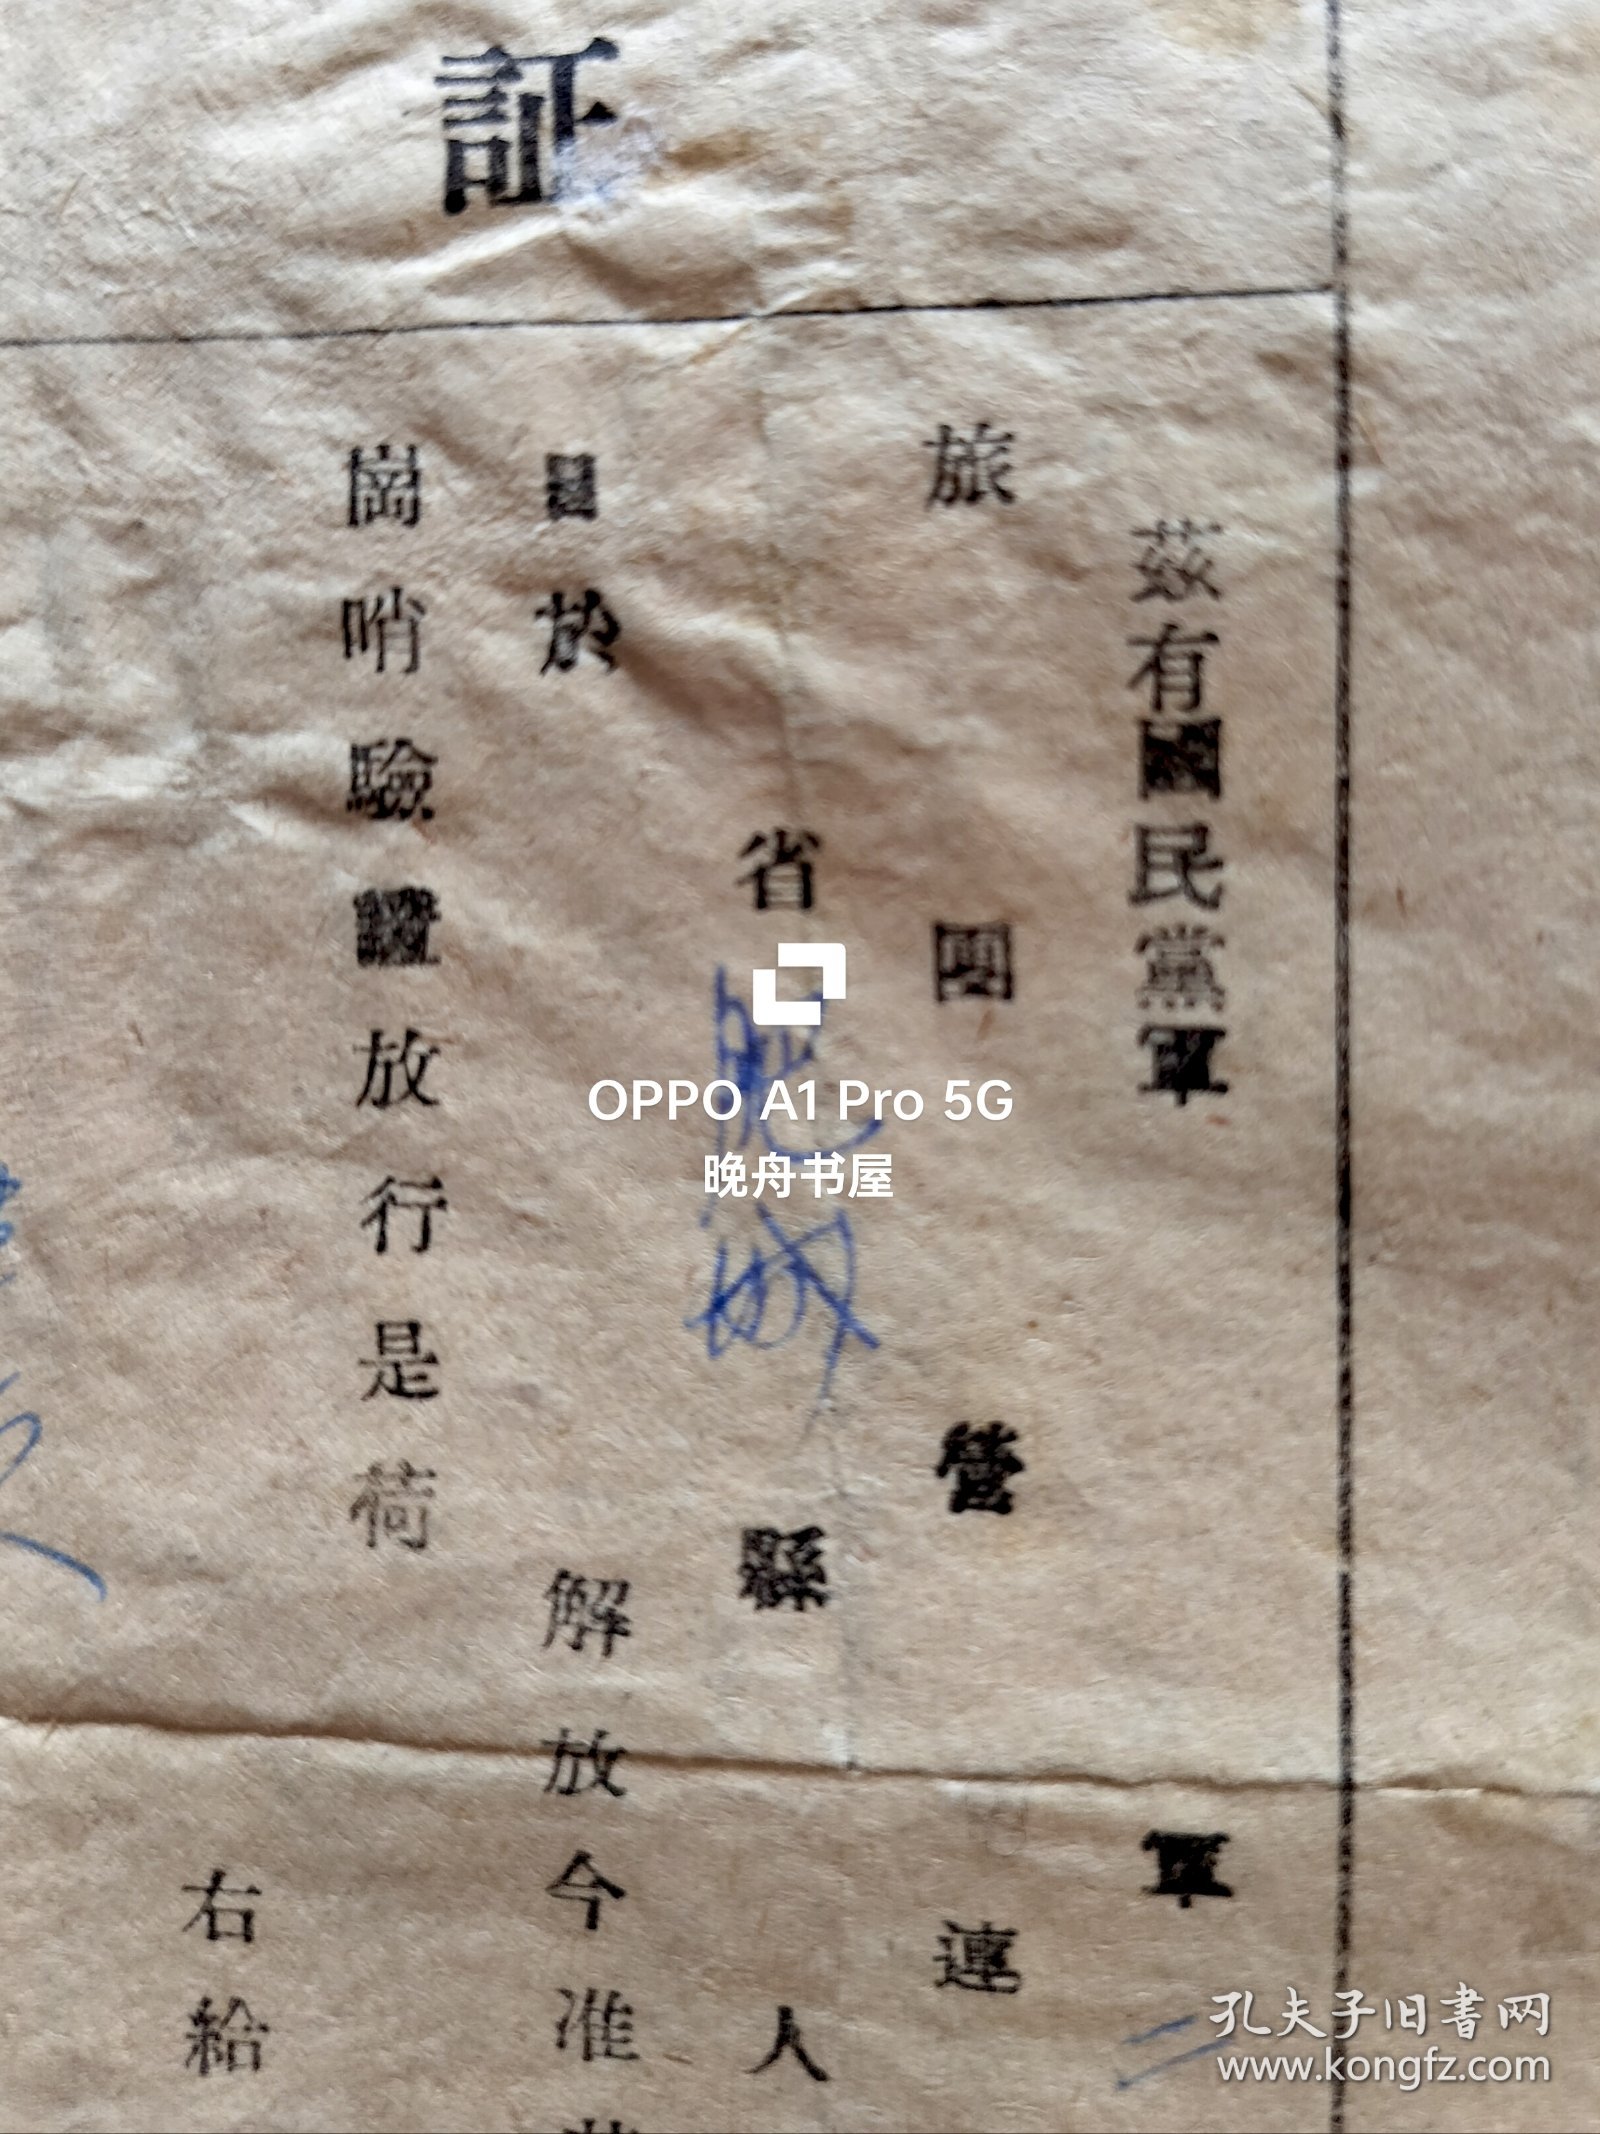 証
茲有國民黨軍 軍 二
旅 團 營 連
省 肥城 縣 人
於 解放今准
崗哨驗證放行是荷
右給
OPPO A1 Pro 5G
晚舟书屋
孔夫子旧書网
www.kongfz.com